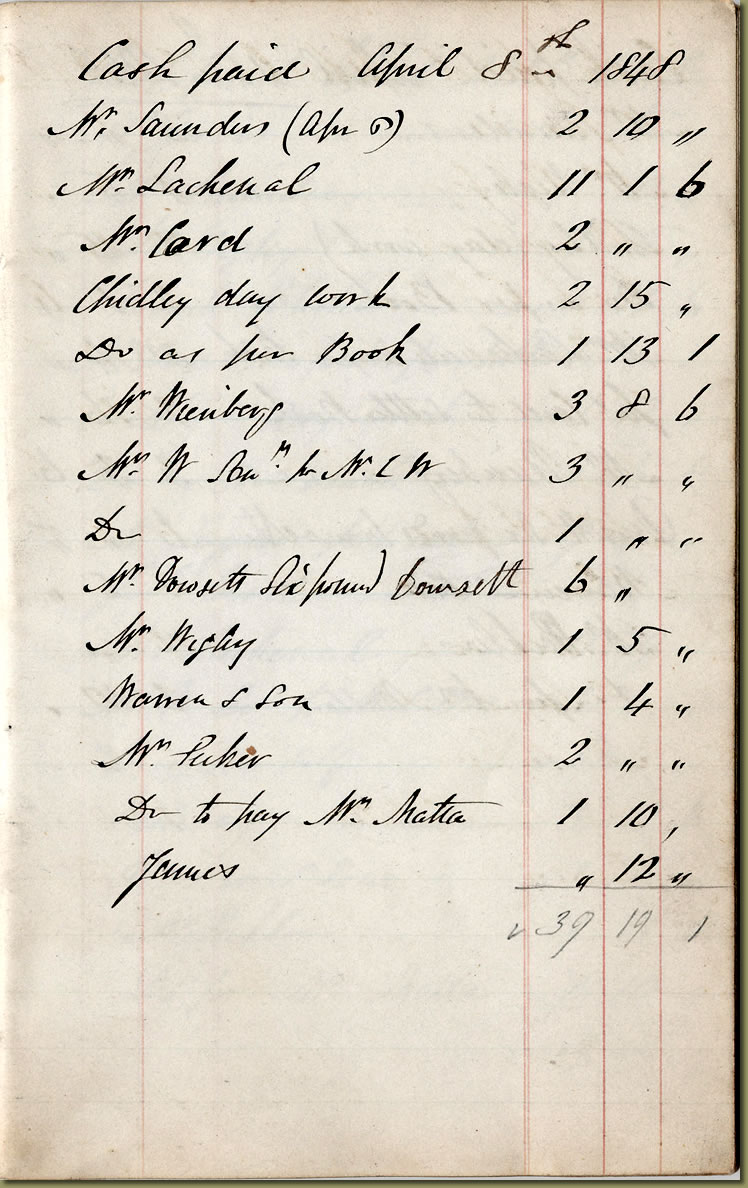 Cash paid April 8th 1848
Mr. Saunders (Apr 6) 2 10 "
Mr. Lachenal 11 1 6
Mr. Card 2 " "
Chidley day work 2 15 "
Do as per Book 1 13 1
Mr. Weinberg 3 8 6
Mr W Senr for Mr. C W 3 " "
Do 1 " "
Mr. Dowsett Six pound Dowsett 6 "
Mr. Wigby 1 5 "
Warren & Son 1 4 "
Mr 2 " "
Do to pay Mr. Matta 1 10 ,
James " 12 "
39 19 1